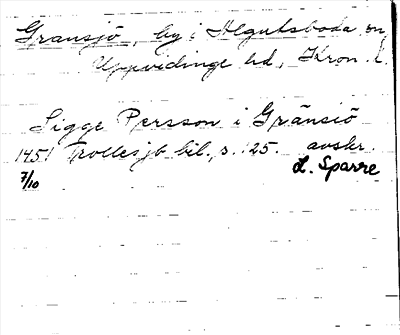 Gransjö, by i Älgutsboda sn,
Uppvidinge hd, Kron. l.
Sigge Persson i Gränsiö
1451 Trollesjb bil., s. 125. avskr.
7/10 L. Sparre